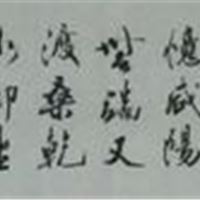 憶咸陽
無端又
渡桑乾
水卻望